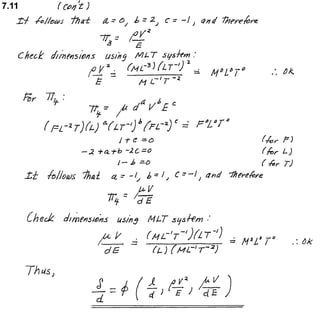 7.11 (con't)
It follows that a = 0, b = 2, c = -1, and therefore
π₃ = ρV²/E
Check dimensions using MLT system:
ρV²/E ≐ (ML⁻³)(LT⁻¹)²/ML⁻¹T⁻² ≐ M⁰L⁰T⁰ ∴ OK
For π₄:
π₄ = μ dᵃ Vᵇ Eᶜ
(FL⁻²T)(L)ᵃ(LT⁻¹)ᵇ(FL⁻²)ᶜ ≐ F⁰L⁰T⁰
1 + c = 0 (for F)
-2 + a + b - 2c = 0 (for L)
1 - b = 0 (for T)
It follows that a = -1, b = 1, c = -1, and therefore
π₄ = μV/dE
Check dimensions using MLT system:
μV/dE ≐ (ML⁻¹T⁻¹)(LT⁻¹)/(L)(ML⁻¹T⁻²) ≐ M⁰L⁰T⁰ ∴ OK
Thus,
δ/d = φ(l/d, ρV²/E, μV/dE)